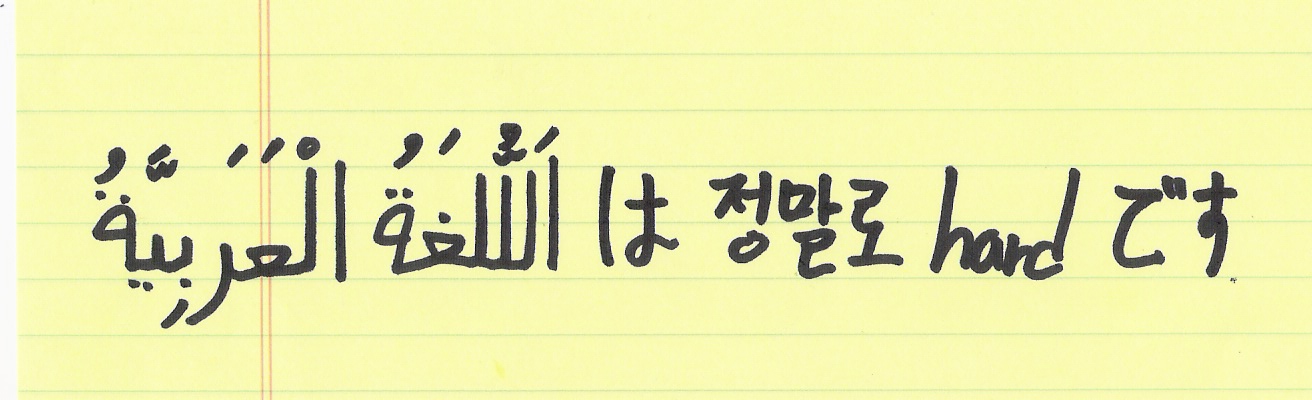 اَللُّغَةُ الْعَرَبِيَّةُ は 정말로 hard です